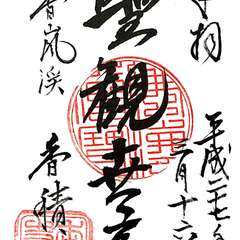 奉拝
平成二十七年
三月十六
聖観世音
香嵐渓
香積